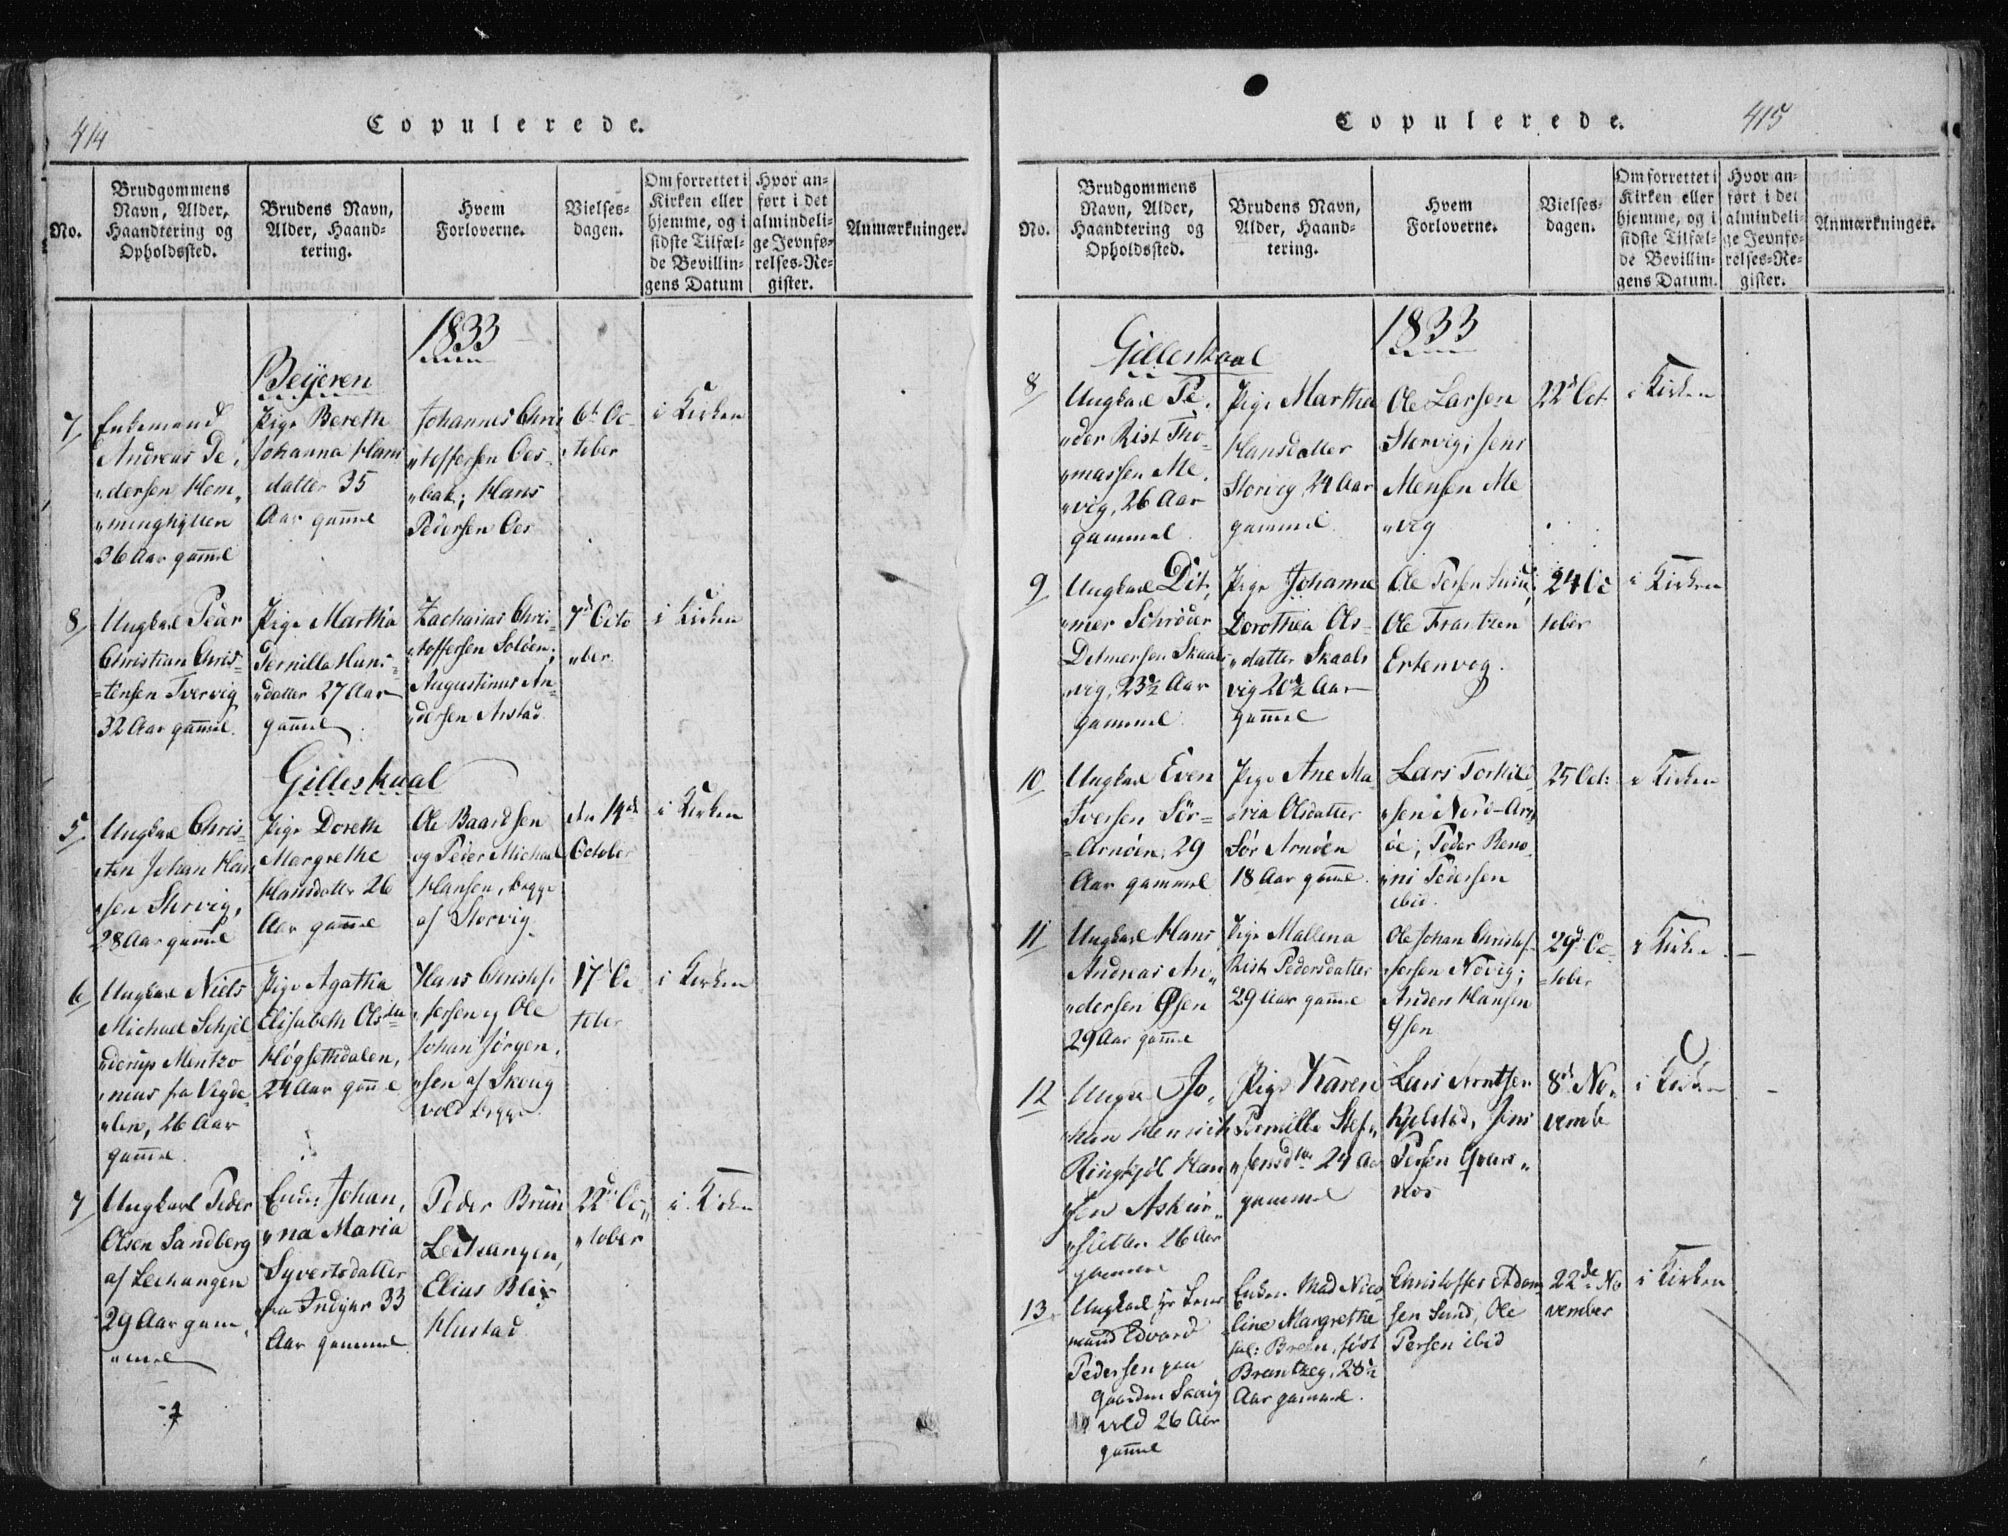 414
Copulerede.
No.
Brudgommens
Navn, Alder,
Haandtering og
Opholdssted.
Brudens Navn,
Alder, Haand-
tering.
Hvem
Forloverne.
Vielses-
dagen.
Om forrettet i
Kirken eller
hjemme, og i
sidste Tilfæl-
de Bevillin-
gens Datum
Hvor an-
ført i det
almindeli-
ge Jevnfø-
relses-Re-
gister.
Anmærkninger.
1833
Beijeren
7
Enkemand
Andreas Pe,
„dersen Hem„
„minghytten
36 Aar gam̅el
Pige Bereth
Johanna Hans
datter 35
Aar gam̅el
Johannes Chri
„stoffersen Oes-
„bak; Hans
Pedersen Oes
6te Oc-
„tober
i Kirken
8
Ungkarl Pear
Christian Chris-
-tensen Tvervig
32 Aar gam̅el.
Pige Martha
Pernilla Hans-
„datter 27 Aar
gam̅el
Zacharias Chris-
„toffersen Soløen;
Augustinus An-
„dersen Arstad
7de Octo
„ber
i Kirken
Gilleskaal
5
Ungkarl Chris-
„ten Johan Han
„sen Storvig,
28 Aar gam̅el
Pige Doreth
Margrethe
Hansdatter 26
Aar gam̅el
Ole Baardsen
og Peder Michael
Hansen, begge
af Storvig
den 14de
October
i Kirken
6
Ungkarl Niels
Michael Schjel
„derup Mentzo
„nius fra Vigda-
„len, 26 Aar
gam̅el
Pige Agatha
Elisabeth Olsdtr
Høgsethdalen,
24 Aar gam̅el
Hans Christof,
„fersen og Ole
Johan Jørgen,
„sen af Skoug
vold begge
17de Oc
tober
i Kirken
7
Ungkarl Peder
Olsen Sandberg
af Lechangen
29 Aar gam,
„mel
Enke: Johan,
„na Maria
Syvertsdatter
fra Indyhr 33
Aar gammel
Peder Bruun
Ledsangen,
Elias Blix
Hustad
22de Oc„
„tober
i Kirken
415
Copulerede.
No.
Brudgommens
Navn, Alder,
Haandtering og
Opholdssted.
Brudens Navn,
Alder, Haand-
tering.
Hvem
Forloverne.
Vielses-
dagen.
Om forrettet i
Kirken eller
hjemme, og i
sidste Tilfæl-
de Bevillin-
gens Datum.
Hvor an-
ført i det
almindeli-
ge Jevnfø-
relses-Re-
gister.
Anmærkninger.
1833
Gilleskaal
8
Ungkarl Pe,
„der Rist Tho-
„massen Me,
„vig, 26 Aar
gammel
Pige Martha
Hansdatter
Storvig 24 Aar
gammel
Ole Larsen
Storvig, Jens
Mensen Me
„vig
22de Oct
i Kirken
9
Ungkarl Dit,
„mer Schrøder
Detmersen Skaals
„vig, 23½ Aar
gammel
Pige Johanne
Dorothea Ols-
„datter Skaals
vig 20½ Aar
gam̅el
Ole Persen Sund,
Ole Frantzen
Ertenvog.
24 Oc
tober
i Kirken
10
Ungkarl Even
Iversen Sør-
-Arnøen, 29
Aar gammel
Pige Ane Ma
-ria Olsdatter
Sør Arnøen
18 Aar gam̅el.
Lars Torkild
„sen Nord-Arn
øe; Peder Beno
„ni Pedersen
ibid.
25 Oct:
i Kirken
11
Ungkarl Hans
Andreas An„
„dersen Øsen
29 Aar gam̅el
Pige Mallena
Rist Pedersdatter
29 Aar gam̅el
Ole Johan Christof-
fersen Novig;
Anders Hansen
Øsen
29de Oc-
-tober
i Kirken
12
Ungkarl Jo,
„han Henrich
Ringkjøb Han
sen Askør-
„sletten 26 Aar
gammel
Pige Karen
Pernille Stef„
„fensdtr 24 Aar
gammel
Lars Arntsen
Kjelstad, Jens
Persen Qvars„
nes
8de No„
vemb
i Kirken
13
Ungkarl Hr Lens
mand Edvard
Pedersen paa
Gaarden Skoug
vold 26 Aar
gam̅el
Enken Mad Nico
line Margrethe
sal: Bredn, født
Brantzeg, 28½
Aar gammel.
Christoffer Adam
sen Sund, Ole
Persen ibid
22de No
vember
i Kirken